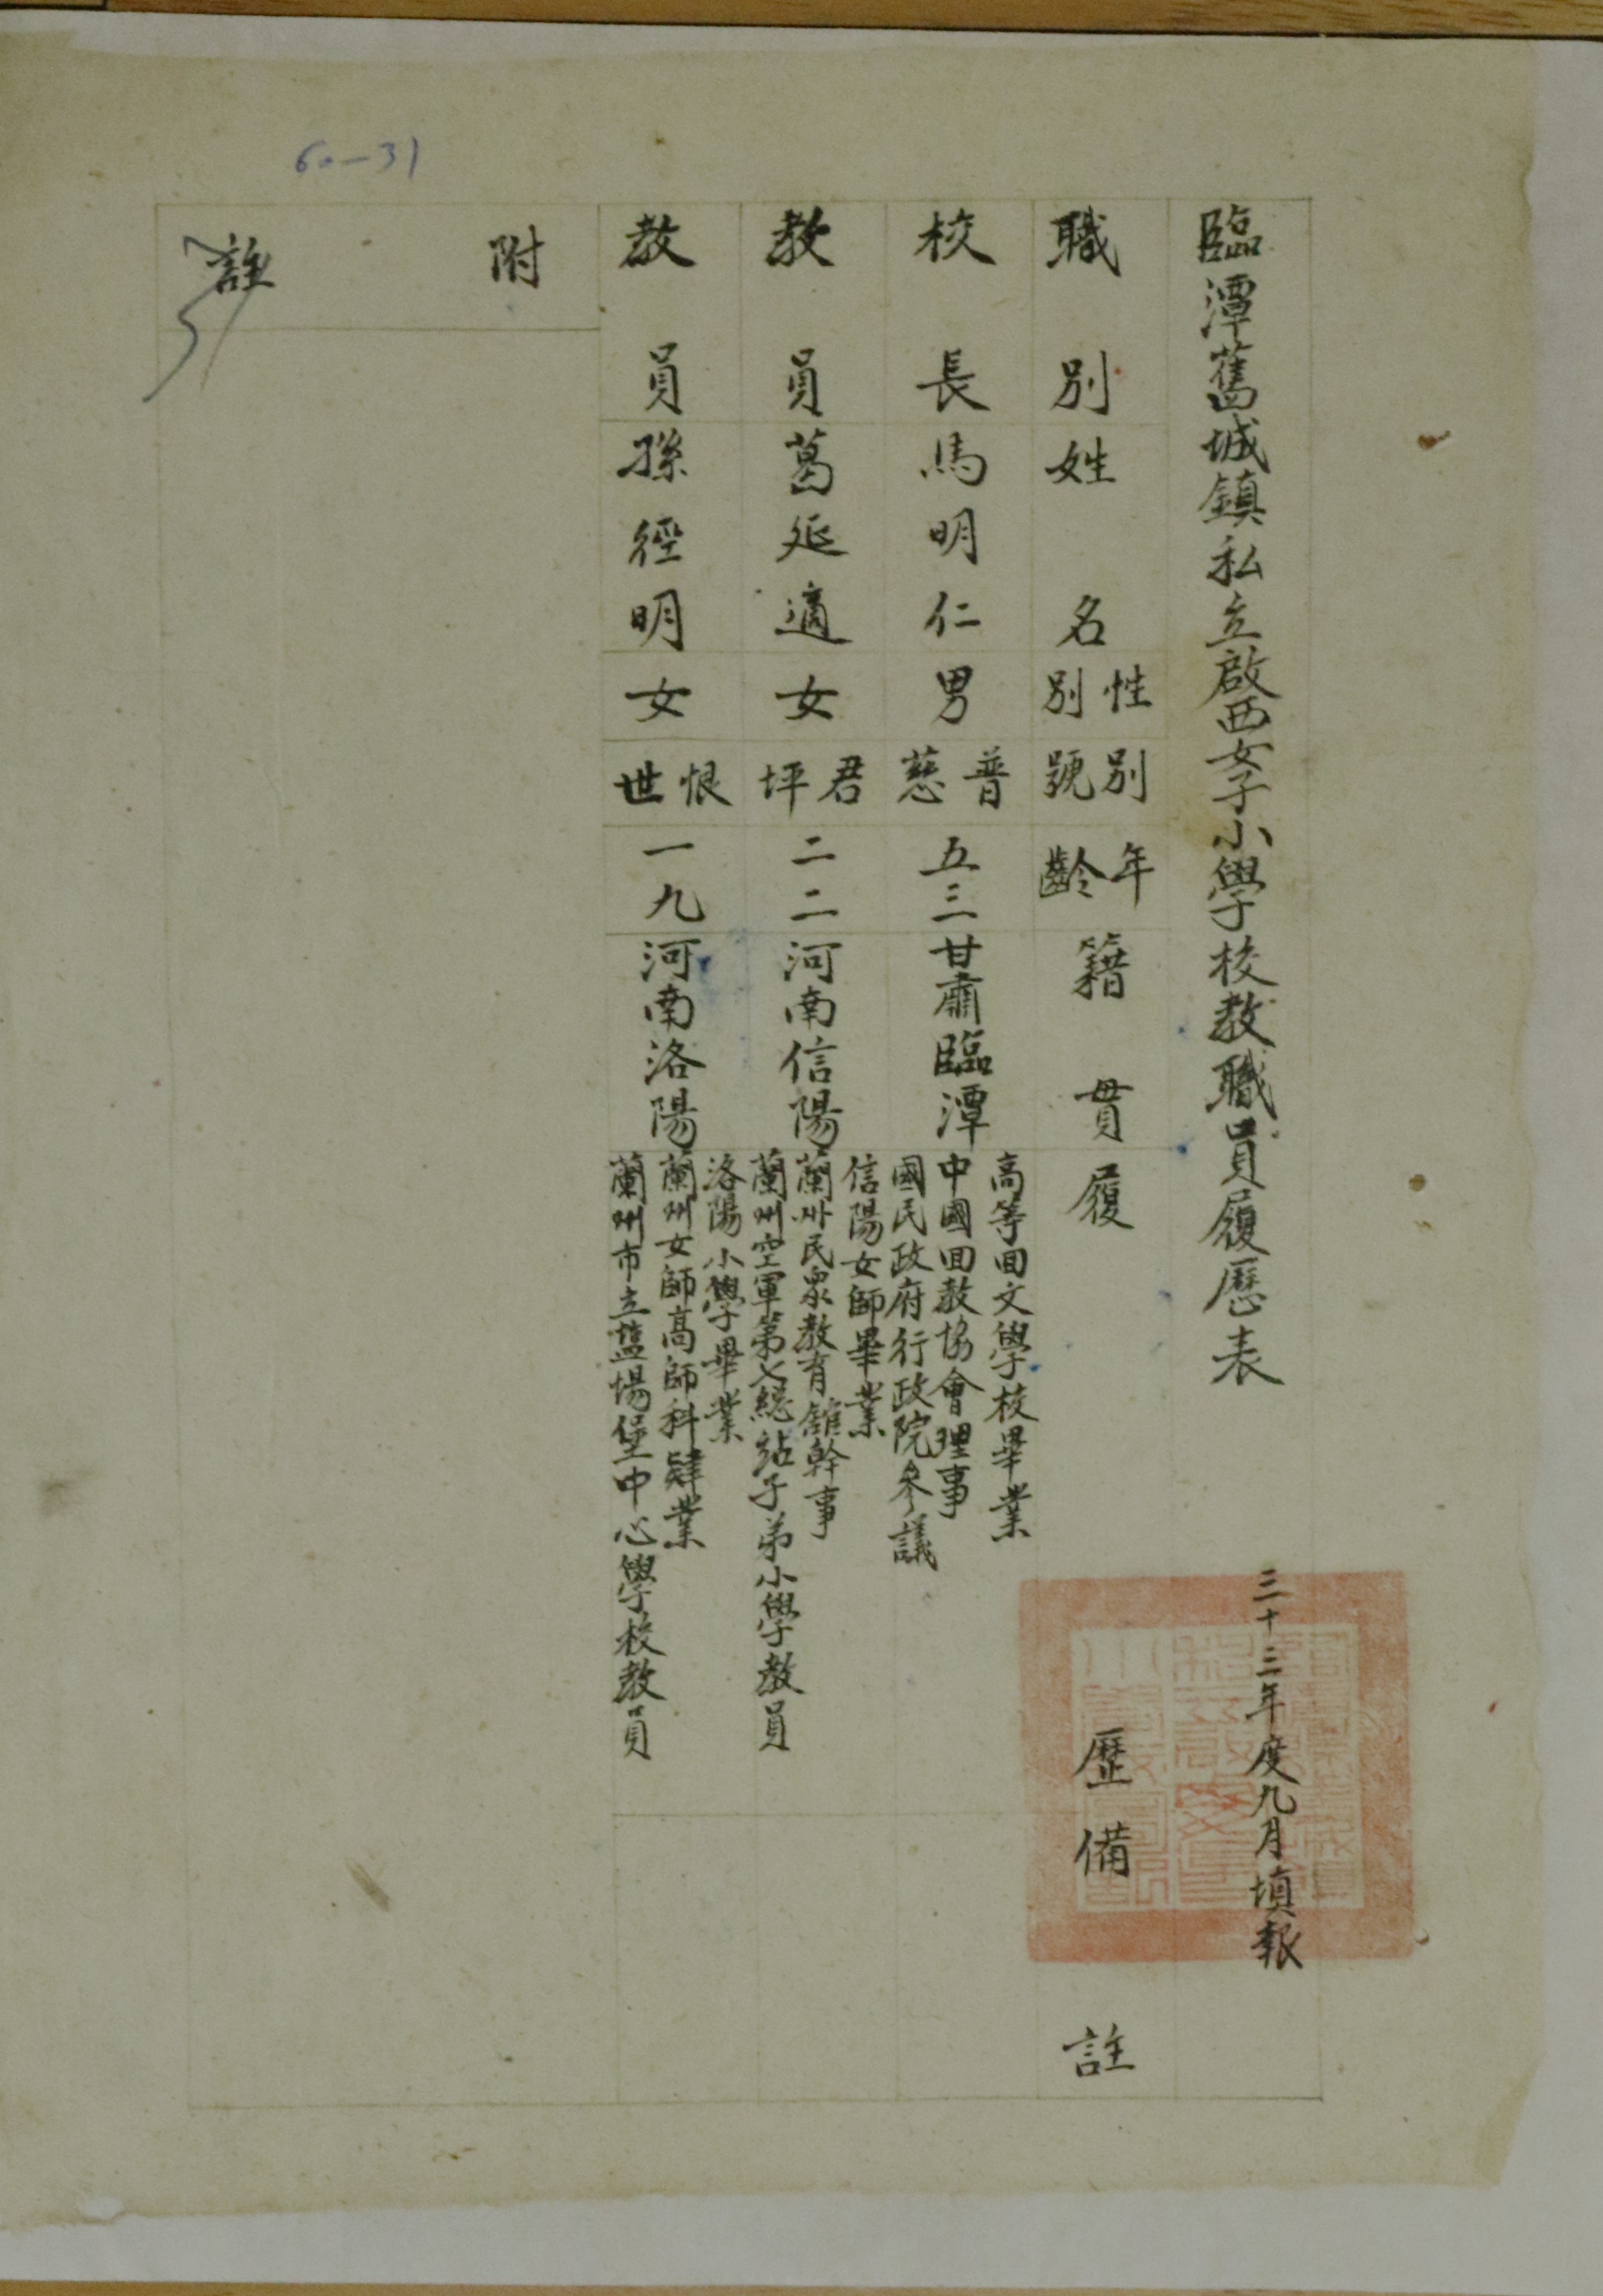 臨潭舊城鎮私立啟西女子小學校教職員履歷表
三十三年度九月填報
職別 姓名 性別 別號 年齡 籍貫 履歷 備註
校長 馬明仁 男 普慈 五三 甘肅臨潭
高等回文學校畢業
中國回教協會理事
國民政府行政院參議
教員 葛延適 女 君坪 二二 河南信陽
信陽女師畢業
蘭州民衆教育館幹事
蘭州空軍第七總站子弟小學教員
教員 孫徑明 女 恨世 一九 河南洛陽
洛陽小學畢業
蘭州女師高師科肄業
蘭州市立鹽場堡中心學校教員
附註
60-31